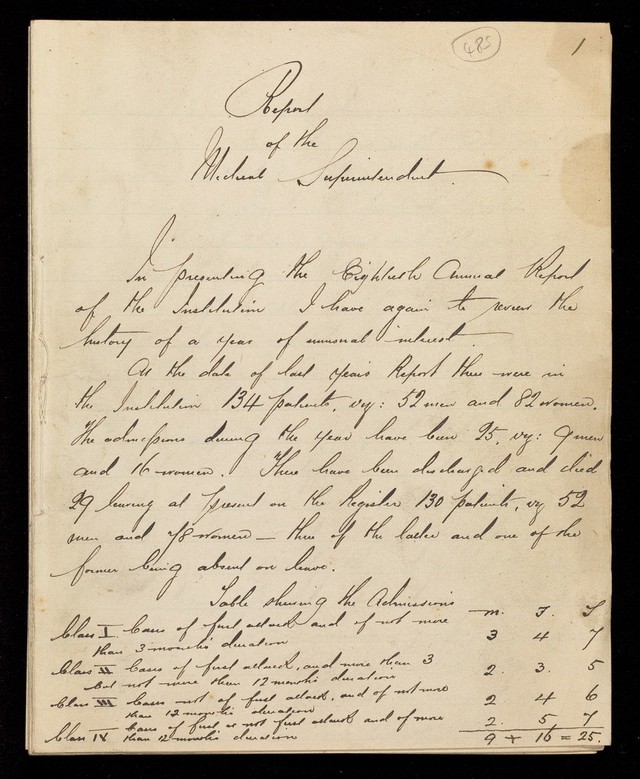 485
1
Report
of the
Medical Superintendent.
In presenting the Eightieth Annual Report
of the Institution I have again to review the
history of a year of unusual interest.
At the date of last years Report there were in
the Institution 134 patients, viz: 52 men and 82 women.
The admissions during the year have been 25, viz: 9 men
and 16 women. There have been discharged and died
29 leaving at present on the Register 130 patients, viz 52
men and 78 women — three of the latter and one of the
former being absent on leave.
Table shewing the Admissions
m. F. T
Class I Cases of first attack and of not more
than 3 months duration 3 4 7
Class II Cases of first attack, and more than 3
but not more than 12 months duration 2. 3. 5
Class III Cases not of first attack, and of not more
than 12 months duration 2 4 6
Class IV Cases of first or not first attack and of more
than 12 months duration 2. 5 7
9 + 16 = 25.